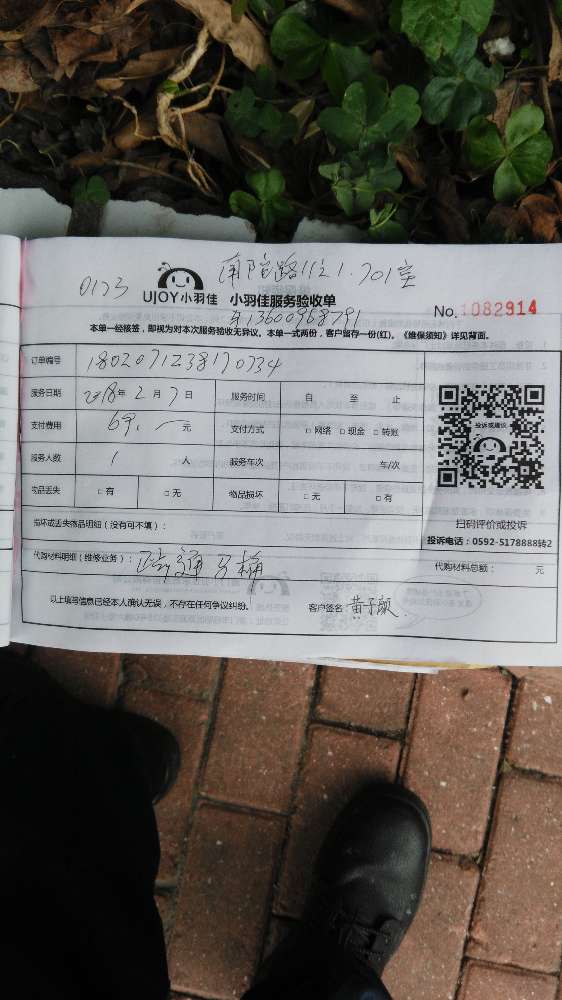 0173
UJOY小羽佳 小羽佳服务验收单
No.1082914
13600968791
本单一经核签，即视为对本次服务验收无异议。本单一式两份，客户留存一份(红)。《维保须知》详见背面。
订单编号 1802071238170734
服务日期 2018年 2 月 7 日 服务时间 自 至 止
支付费用 69.一 元 支付方式 □ 网络 □ 现金 □ 转账
服务人数 1 人 服务车次 车/次
物品丢失 □ 有 □ 无 物品损坏 □ 无 □ 有
投诉或建议
扫码评价或投诉
投诉电话：0592-5178888转2
损坏或丢失物品明细（没有可不填）：
代购材料明细（维修业务）： 疏通马桶
代购材料总额： 元
以上填写信息已经本人确认无误，不存在任何争议纠纷。 客户签名：